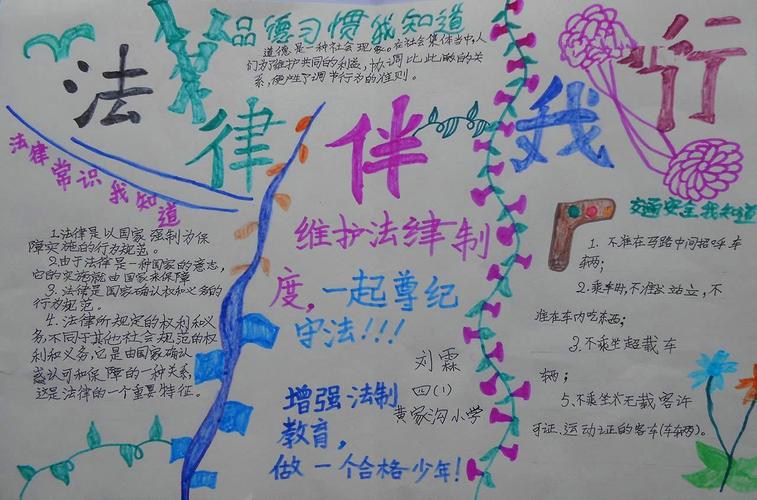 法律伴我行
品德习惯我知道
道德是一种社会现象。在社会集体当中,人
们为了维护共同的利益,协调比此的的关
系,便产生了调节行为的准则。
法律常识我知道
1.法律是以国家强制为保
障实施的行为规范。
2.由于法律是一种国家的意志,
它的实施就由国家来保障
3.法律是国家确认权和义务的
行为规范。
4.法律所规定的权利和义
务,不同于其他社会规范的权
利和义务,它是由国家确认
或认可和保障的一种关系,
这是法律的一个重要特征。
维护法律制
度,一起尊纪
守法!!!
刘霖
四(1)
黄家沟小学
增强法制
教育,
做一个合格少年!
交通安全我知道
1.不准在马路中间招呼车
辆;
2.乘车时,不准站立,不
准在车内吃东西;
3.不乘坐超载车
辆;
5.不乘坐无载客许
可证、运动证的客车(车辆)。